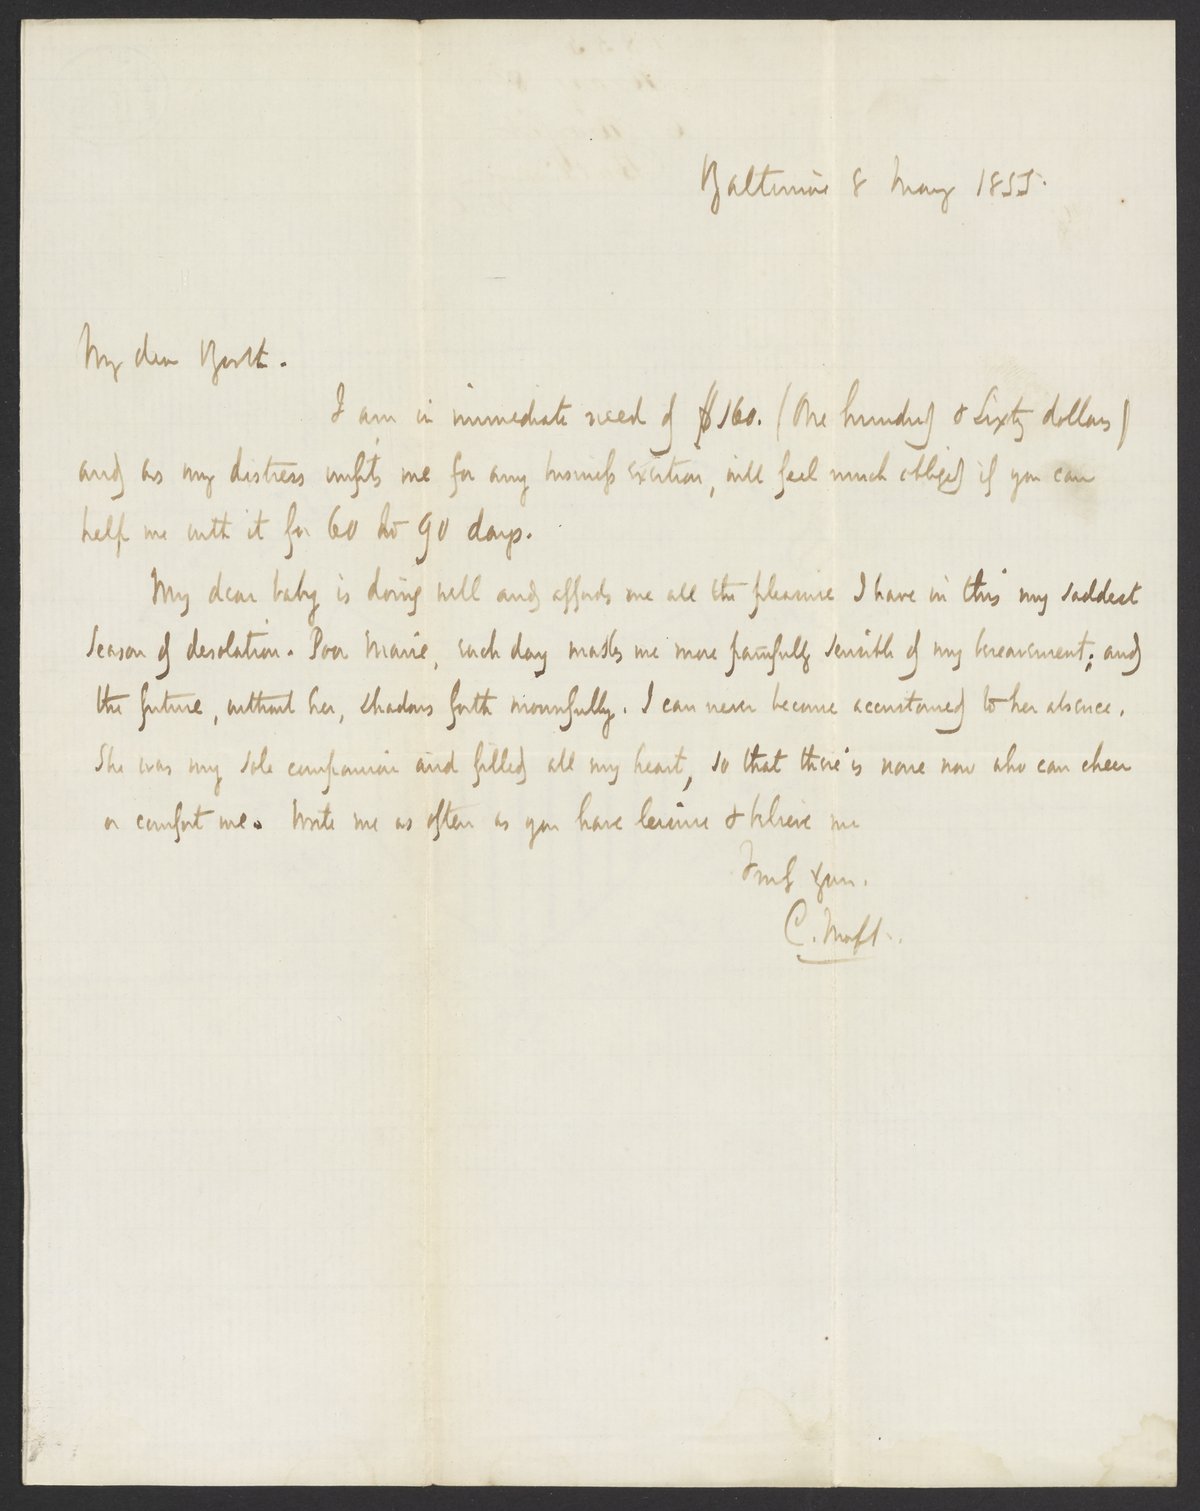 Baltimore 8 May 1855.
My dear
I am in immediate need of $160. (One hundred & Sixty dollars)
and as my distress unfits me for any business exertion, will feel much obliged if you can
help me with it for 60 to 90 days.
My dear baby is doing well and affords me all the pleasure I have in this my saddest
season of desolation. Poor Marie, each day makes me more painfully sensible of my bereavement; and
the future, without her, shadows forth mournfully. I can never become accustomed to her absence.
She was my sole companion and filled all my heart, so that there is none now who can cheer
or comfort me. Write me as often as you have leisure & believe me
Truly Yours.
C.